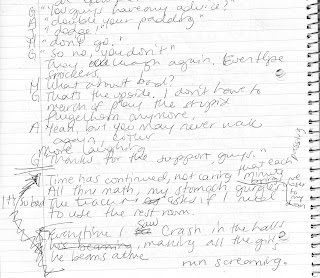 G "You guys have any advice?"
A "double your padding"
J "dodge."
H "don't go."
G "So no, you don't"
They all laugh again. Even
M What about band?
G That's the upside, I don't have to
march or play the stupid
flugerhorn anymore.
A Yeah, but you may never walk
again, either
More laughing
G Thanks for the support, guys."
Time has continued, not caring that each minute
All thru math, my stomach gurgles
The teacher asks if I need
to use the rest room
Everytime I saw Crash in the halls
he beams alive
run screaming.